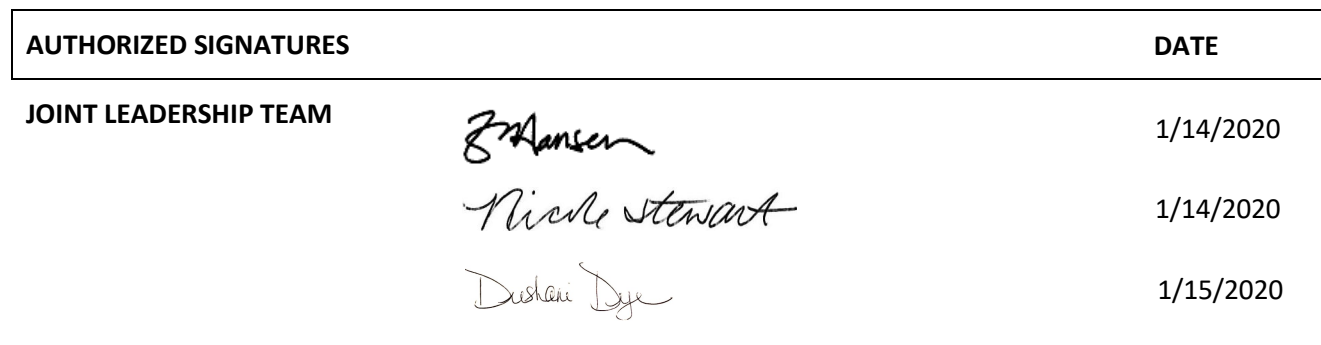 AUTHORIZED SIGNATURES DATE
JOINT LEADERSHIP TEAM Hansen 1/14/2020
Nicole Stewart 1/14/2020
Dushani Dye 1/15/2020